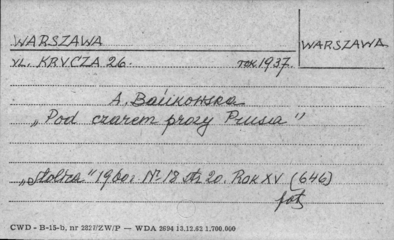 WARSZAWA
WARSZAWA
UL. KRUCZA 26. ROK 1937.
A. Bańkowska
„Pod czarem prozy Prusa"
„Stolica" 1960r. Nr 18 str 20. ROK XV (646)
fot.
CWD - H-15-b, nr 2827/ZW/P — WDA 2694 13.12.62 1.700.000